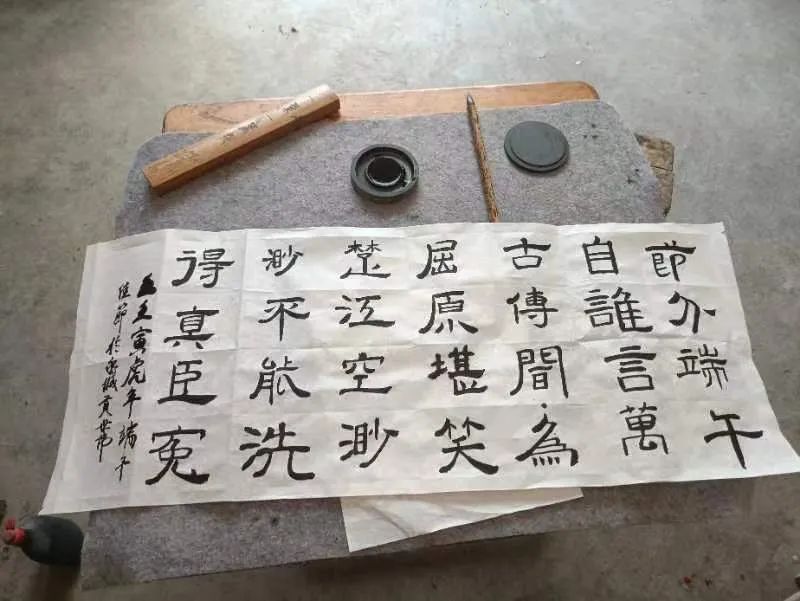 節分端午
自誰言萬
古傳間為
屈原堪笑
楚江空渺
渺不能洗
得真臣冤
壬寅虎年端午
佳節於城